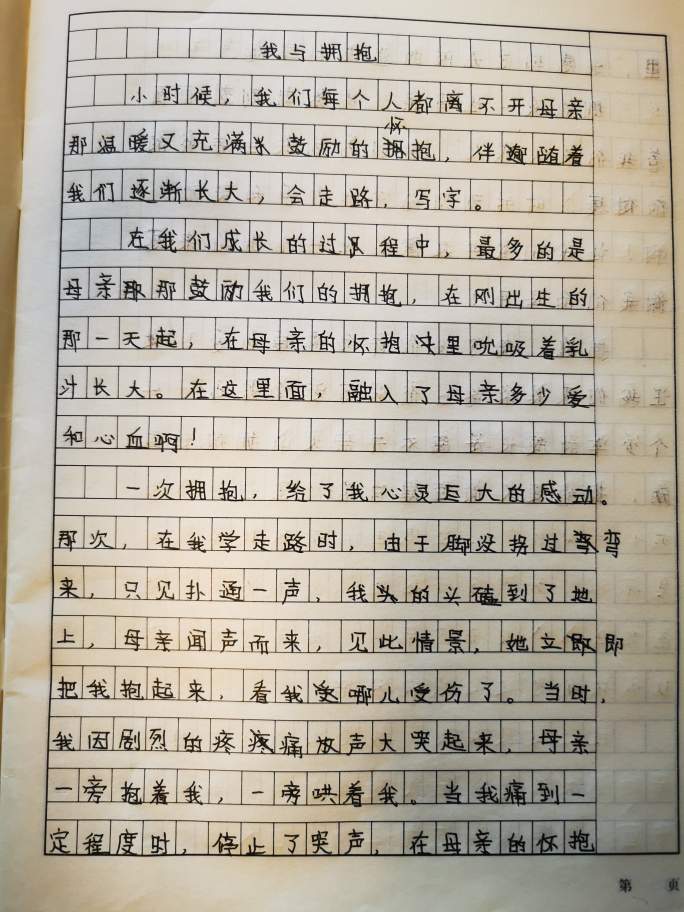 我与拥抱
小时候，我们每个人都离不开母亲
那温暖又充满鼓励的怀抱，伴随着
我们逐渐长大，会走路，写字。
在我们成长的过程中，最多的是
母亲那鼓励我们的拥抱，在刚出生的
那一天起，在母亲的怀抱里吮吸着乳
汁长大。在这里面，融入了母亲多少爱
和心血啊！
一次拥抱，给了我心灵巨大的感动。
那次，在我学走路时，由于脚没拐过弯
来，只见扑通一声，我的头磕到了地
上，母亲闻声而来，见此情景，她立即
把我抱起来，看我哪儿受伤了。当时，
我因剧烈的疼痛放声大哭起来，母亲
一旁抱着我，一旁哄着我。当我痛到一
定程度时，停止了哭声，在母亲的怀抱
第 页